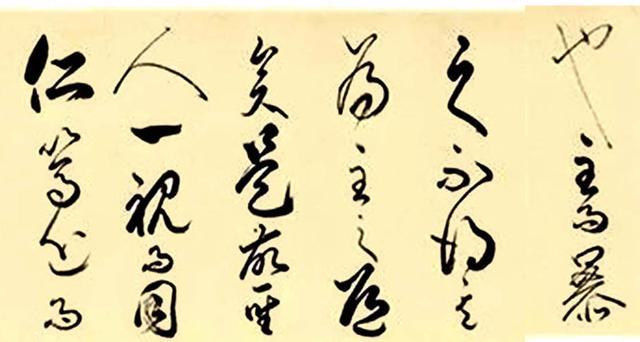 也主而暴
之不得其
為主之道
矣是故聖
人一視而同
仁篤近而